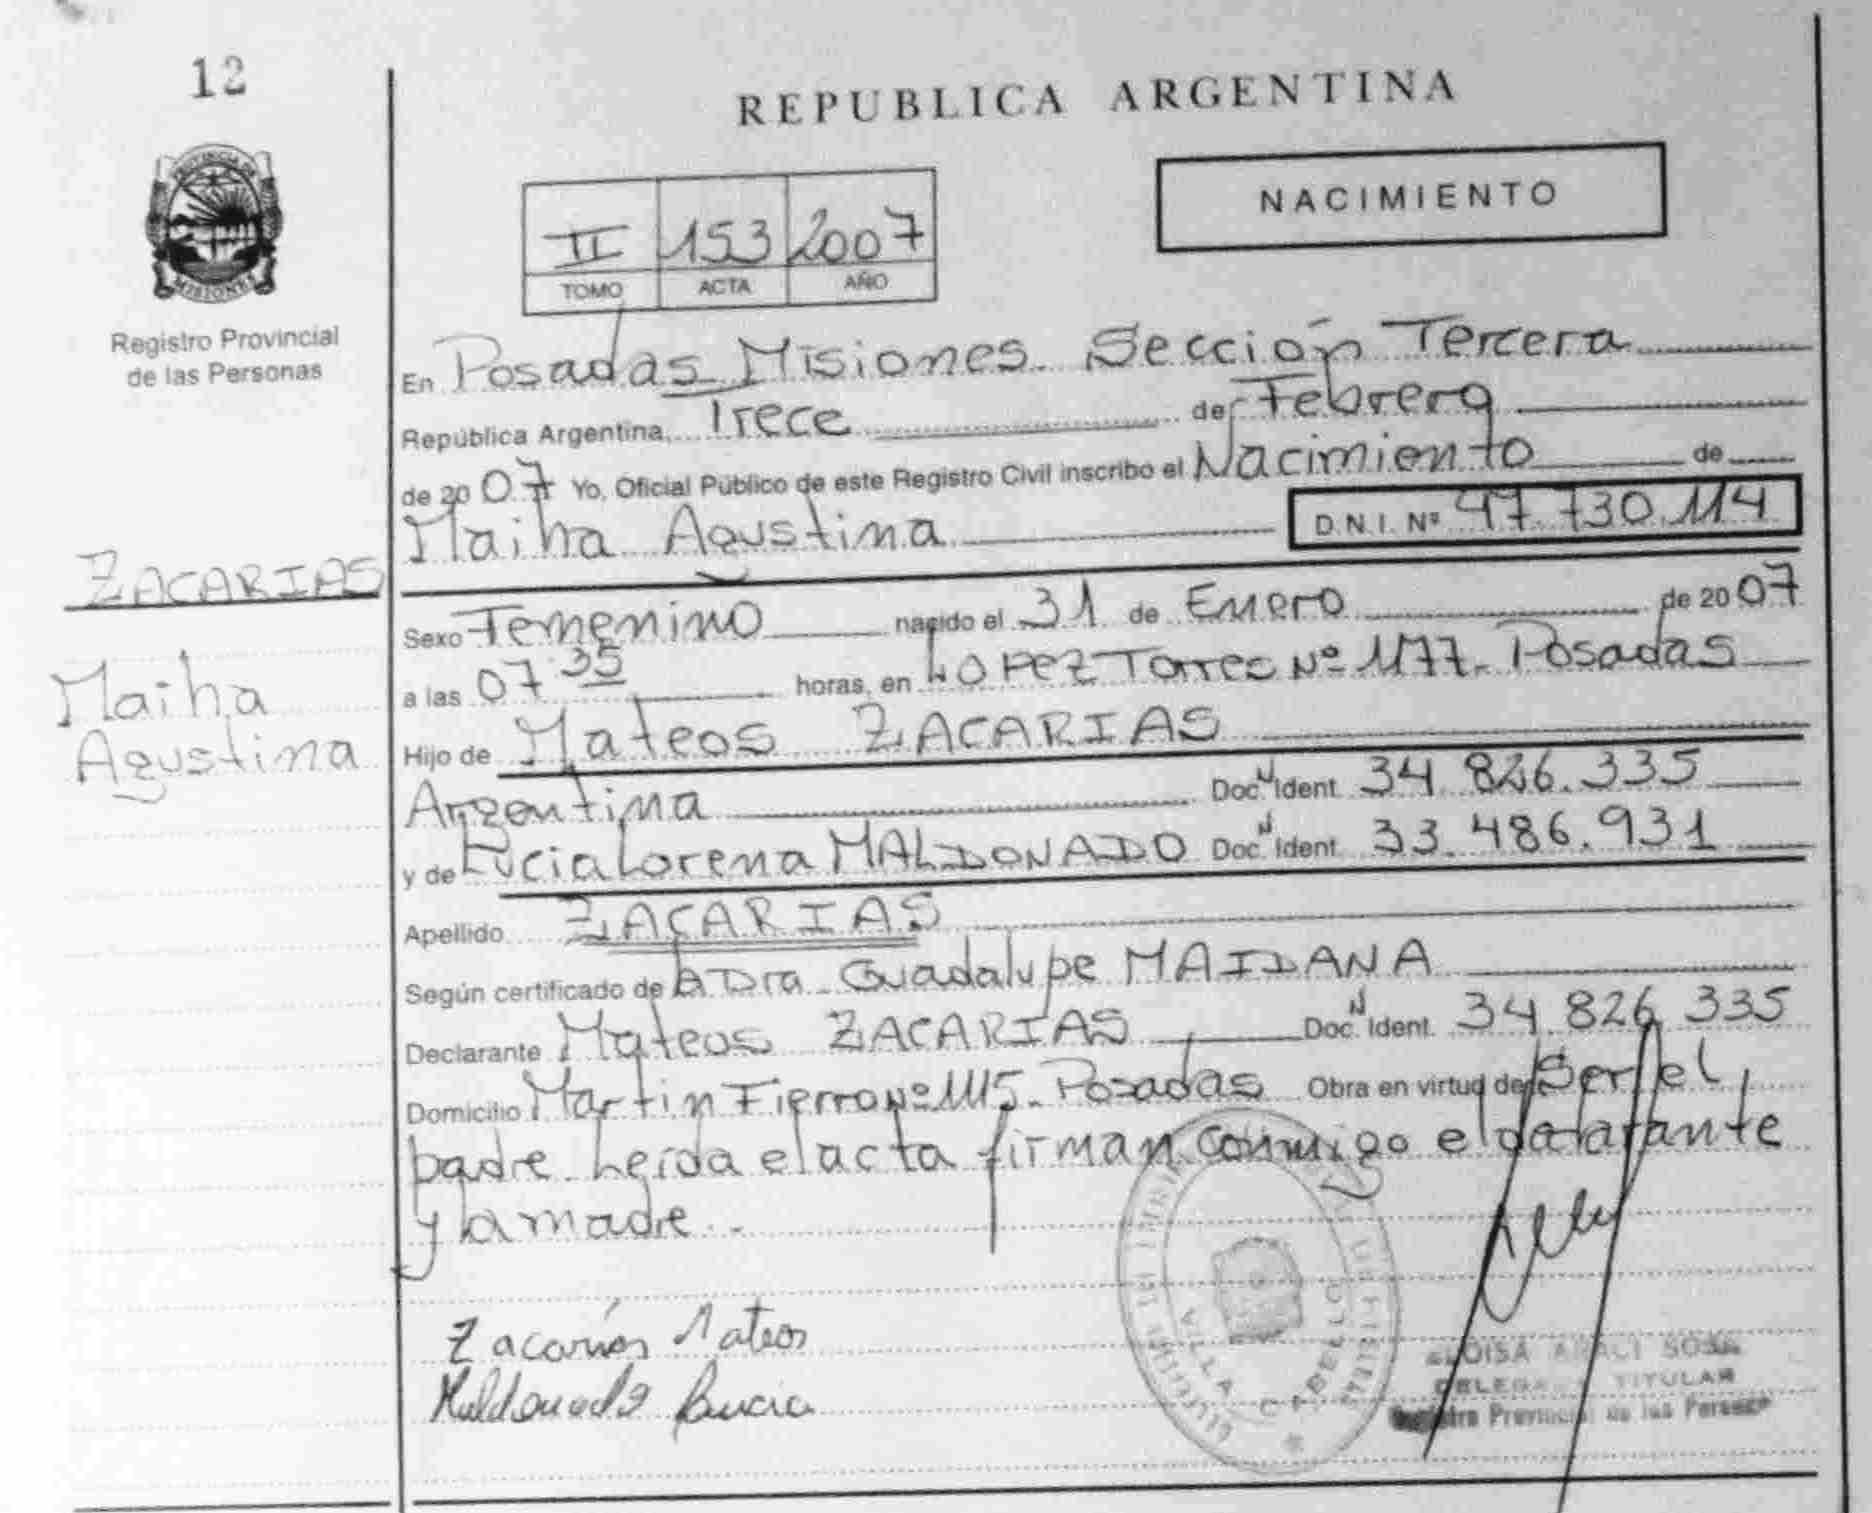 12
REPUBLICA ARGENTINA
PROVINCIA DE
MISIONES
Registro Provincial
de las Personas
NACIMIENTO
II 153 2007
TOMO ACTA AÑO
En Posadas Misiones. Sección Tercera
República Argentina, Trece de Febrero
de 2007 Yo, Oficial Público de este Registro Civil inscribo el Nacimiento de
Maiha Agustina D.N.I. Nº 47.730.114
ZACARIAS
Maiha
Agustina
Sexo Femenino nacido el 31 de Enero de 2007
a las 07 35 horas, en Lopez Torres Nº 1177. Posadas
Hijo de Mateos ZACARIAS
Argentina Doc. N Ident. 34.826.335
y de Lucia Lorena MALDONADO Doc. N Ident. 33.486.931
Apellido ZACARIAS
Según certificado de la Dra Guadalupe MAIDANA
Declarante Mateos ZACARIAS Doc. N Ident. 34.826.335
Domicilio Martin Fierro Nº 1115. Posadas Obra en virtud de Ser el
padre Leída el acta firman conmigo el declarante
y la madre.-
Zacarías Mateos
Maldonado Lucia
VILLA CABELLO
ARACI SOSA
TITULAR
Provincial de las Personas